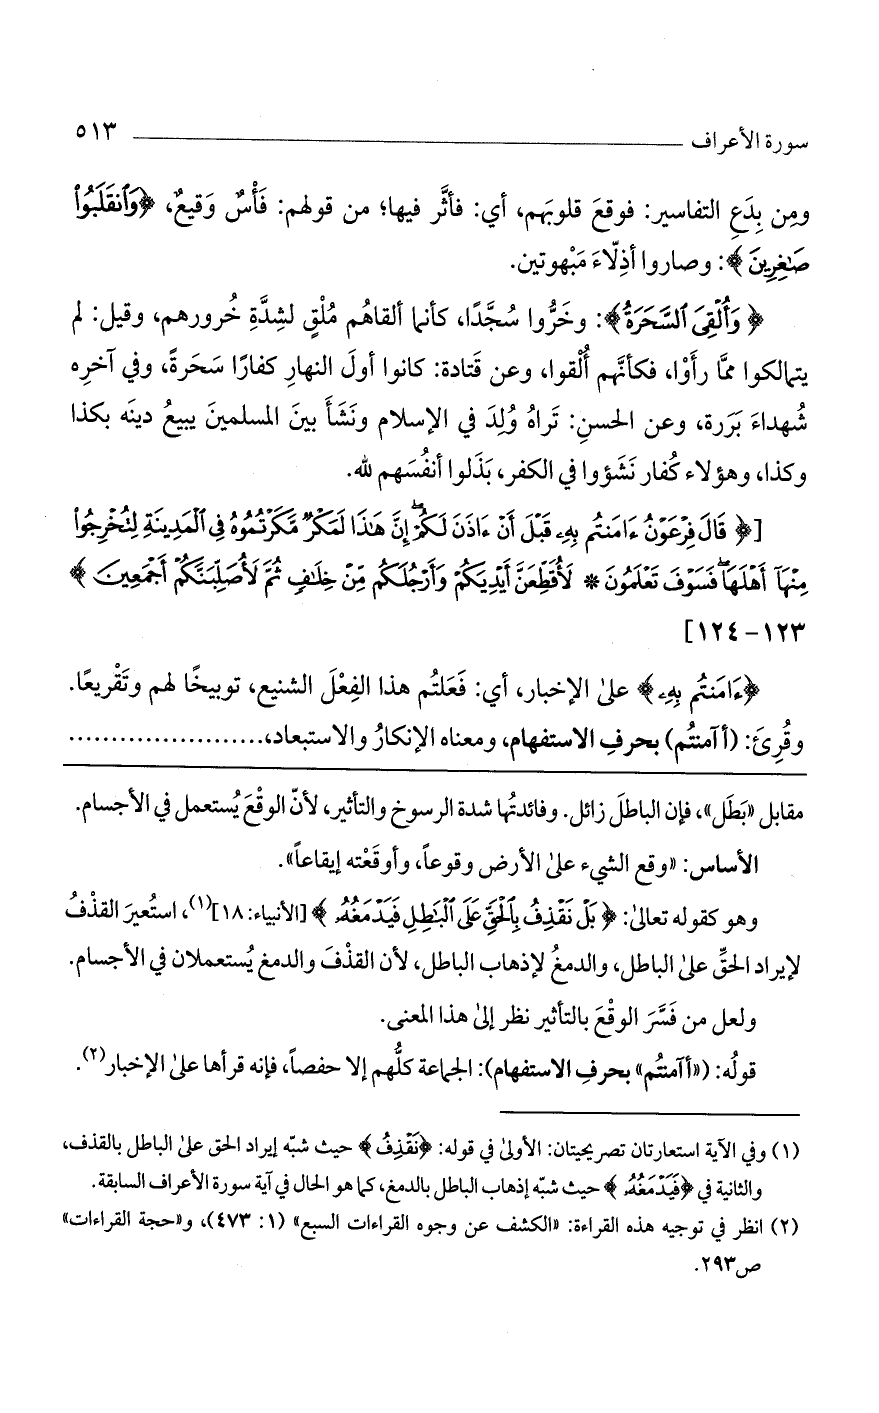 سورة الأعراف ٥١٣
ومِن بِدَعِ التفاسير: فوقعَ قلوبَهم، أي: فأثَّر فيها؛ من قولهم: فَأْسٌ وَقيعٌ، ﴿وَٱنقَلَبُوا۟
صَٰغِرِينَ﴾: وصاروا أذِلّاءَ مَبْهوتين.
﴿وَأُلْقِىَ ٱلسَّحَرَةُ﴾: وخَرُّوا سُجَّدًا، كأنما ألقاهُم مُلْقٍ لشِدَّةِ خُرورهم، وقيل: لم
يتمالكوا ممَّا رأَوْا، فكأنَّهم أُلْقوا، وعن قَتادة: كانوا أولَ النهارِ كفارًا سَحَرةً، وفي آخرِه
شُهداءَ بَرَرة، وعن الحسنِ: تَراهُ وُلِدَ في الإسلام ونَشَأَ بينَ المسلمينَ يبيعُ دينَه بكذا
وكذا، وهؤلاء كُفار نَشَؤوا في الكفر، بَذَلوا أنفُسَهم لله.
[﴿قَالَ فِرْعَوْنُ ءَامَنتُم بِهِۦ قَبْلَ أَنْ ءَاذَنَ لَكُمْ ۖ إِنَّ هَٰذَا لَمَكْرٌ مَّكَرْتُمُوهُ فِى ٱلْمَدِينَةِ لِتُخْرِجُوا۟
مِنْهَآ أَهْلَهَا ۖ فَسَوْفَ تَعْلَمُونَ * لَأُقَطِّعَنَّ أَيْدِيَكُمْ وَأَرْجُلَكُم مِّنْ خِلَٰفٍ ثُمَّ لَأُصَلِّبَنَّكُمْ أَجْمَعِينَ﴾
١٢٣-١٢٤]
﴿ءَامَنتُم بِهِۦ﴾ علىٰ الإخبار، أي: فَعَلتُم هذا الفِعْلَ الشنيع، توبيخًا لهم وتَقْريعًا.
وقُرِئَ: (أآمنتُم) بحرفِ الاستفهام، ومعناه الإنكارُ والاستبعاد،......................
مقابل «بَطَل»، فإن الباطلَ زائل. وفائدتُها شدة الرسوخ والتأثير، لأنّ الوقْعَ يُستعمل في الأجسام.
الأساس: «وقع الشيء علىٰ الأرض وقوعاً، وأوقَعْته إيقاعاً».
وهو كقوله تعالىٰ: ﴿بَلْ نَقْذِفُ بِٱلْحَقِّ عَلَى ٱلْبَٰطِلِ فَيَدْمَغُهُۥ﴾ [الأنبياء: ١٨](١)، استُعيرَ القذْفُ
لإيراد الحقِّ علىٰ الباطل، والدمغُ لإذهاب الباطل، لأن القذْفَ والدمغ يُستعملان في الأجسام.
ولعل من فَسَّرَ الوقْعَ بالتأثير نظر إلىٰ هذا المعنى.
قولُه: («أآمنتُم» بحرفِ الاستفهام): الجماعة كلُّهم إلا حفصاً، فإنه قرأها علىٰ الإخبار(٢).
(١) وفي الآية استعارتان تصريحيتان: الأولىٰ في قوله: ﴿نَقْذِفُ﴾ حيث شبّه إيراد الحق علىٰ الباطل بالقذف،
والثانية في ﴿فَيَدْمَغُهُۥ﴾ حيث شبّه إذهاب الباطل بالدمغ، كما هو الحال في آية سورة الأعراف السابقة.
(٢) انظر في توجيه هذه القراءة: «الكشف عن وجوه القراءات السبع» (١: ٤٧٣)، و«حجة القراءات»
ص٢٩٣.